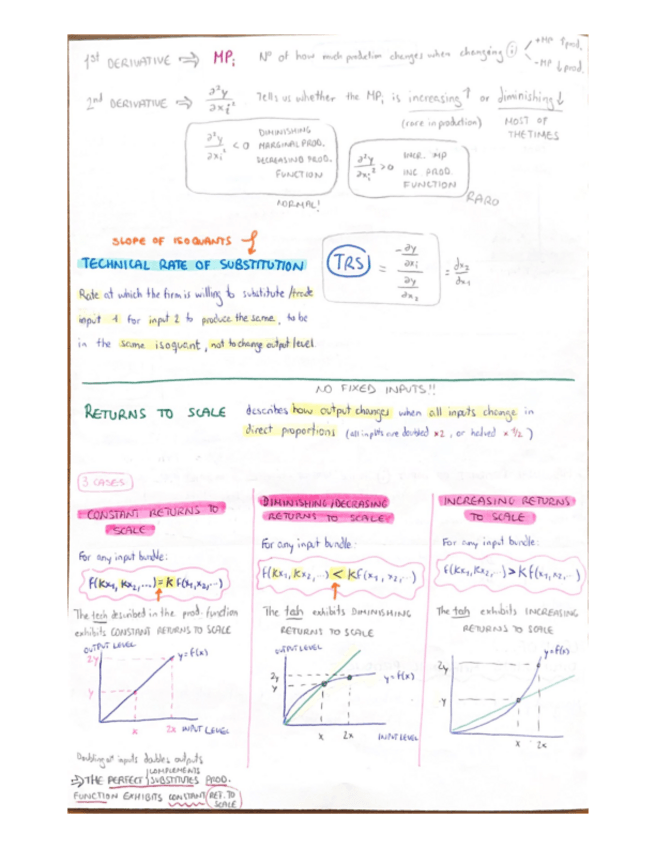 1st DERIVATIVE ⇒ MPi Nº of how much production changes when changing (i) +MP ↑prod.
-MP ↓prod.
2nd DERIVATIVE ⇒ ∂²y/∂xi² Tells us whether the MPi is increasing↑ or diminishing↓
(rare in production) MOST OF THE TIMES
∂²y/∂xi² < 0 DIMINISHING
MARGINAL PROD.
DECREASING PROD.
FUNCTION
NORMAL!
∂²y/∂xi² > 0 INCR. MP
INC. PROD.
FUNCTION
RARO
SLOPE OF ISOQUANTS
TECHNICAL RATE OF SUBSTITUTION
TRS = -∂y/∂x₁ / ∂y/∂x₂ = dx₂/dx₁
Rate at which the firm is willing to substitute/trade
input 1 for input 2 to produce the same, to be
in the same isoquant, not to change output level
NO FIXED INPUTS!!
RETURNS TO SCALE describes how output changes when all inputs change in
direct proportions (all inputs are doubled ×2, or halved × 1/2)
3 CASES
CONSTANT RETURNS TO
SCALE
For any input bundle:
f(kx₁, kx₂, ...) = k f(x₁, x₂, ...)
The tech described in the prod. function
exhibits CONSTANT RETURNS TO SCALE
OUTPUT LEVEL
2y
y=f(x)
y
x 2x INPUT LEVEL
Doubling all inputs doubles outputs
⇒ THE PERFECT COMPLEMENTS/SUBSTITUTES PROD.
FUNCTION EXHIBITS CONSTANT RET. TO
SCALE
DIMINISHING/DECREASING
RETURNS TO SCALE
For any input bundle:
f(kx₁, kx₂, ...) < kf(x₁, x₂, ...)
The teh exhibits DIMINISHING
RETURNS TO SCALE
OUTPUT LEVEL
2y
y
y=f(x)
x 2x INPUT LEVEL
INCREASING RETURNS
TO SCALE
For any input bundle:
f(kx₁, kx₂, ...) > kf(x₁, x₂, ...)
The teh exhibits INCREASING
RETURNS TO SCALE
y=f(x)
2y
y
x 2x